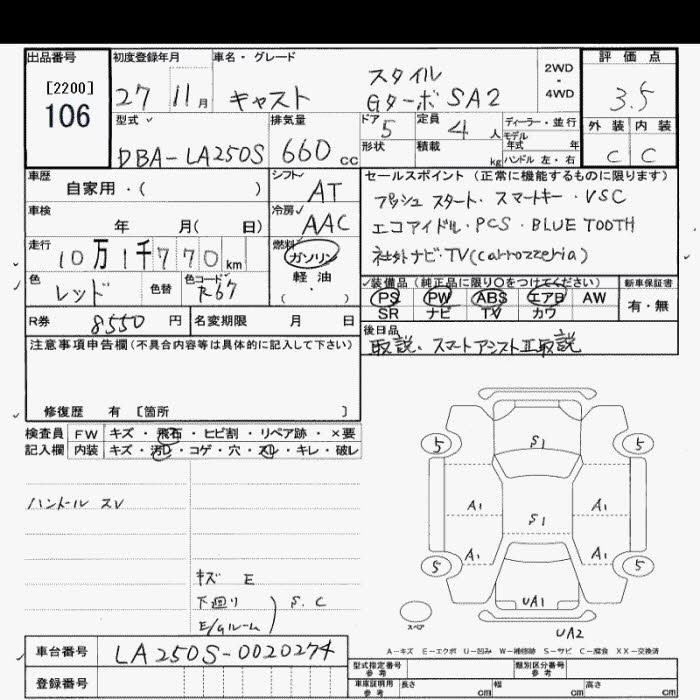 出品番号 初度登録年月 車名・グレード 評価点
[2200]
106
27 11月 キャスト
スタイル
Gターボ SA2
2WD・4WD
3.5
型式 排気量 ドア 定員 ディーラー・並行 外装 内装
DBA-LA250S 660 cc 5 4人
モデル年式 年
形状 積載 kg ハンドル 左・右 C C
車歴 自家用・( ) シフト AT
セールスポイント (正常に機能するものに限ります)
プッシュスタート・スマートキー・VSC
車検 年 月( 日) 冷房 AAC
エコアイドル・PCS・BLUE TOOTH
走行 10万1千770km 燃料 ガソリン
軽油
社外ナビ・TV(carrozzeria)
色 レッド 色替 色コード R67
装備品 (純正品に限り○をつけてください) 新車保証書
PS PW ABS エアB AW 有・無
SR ナビ TV カワ
R券 8550円 名変期限 月 日
後日品
取説、スマートアシストⅡ取説
注意事項申告欄(不具合内容等は具体的に記入して下さい)
修復歴 有 [箇所 ]
検査員 FW キズ・飛石・ヒビ割・リペア跡・×要
記入欄 内装 キズ・汚レ・コゲ・穴・スレ・キレ・破レ
ハンドル スレ
キズ E
下廻り
E/gルーム
S.C
5 S1 5
A1 S1 A1
A1 A1
5 5
UA1
スペア
UA2
A-キズ E-エクボ U-凹み W-補修跡 S-サビ C-腐食 XX-交換済
車台番号 LA250S-0020274
登録番号
型式指定番号 参考 類別区分番号 参考
車庫証明用 参考 長さ cm 幅 cm 高さ cm